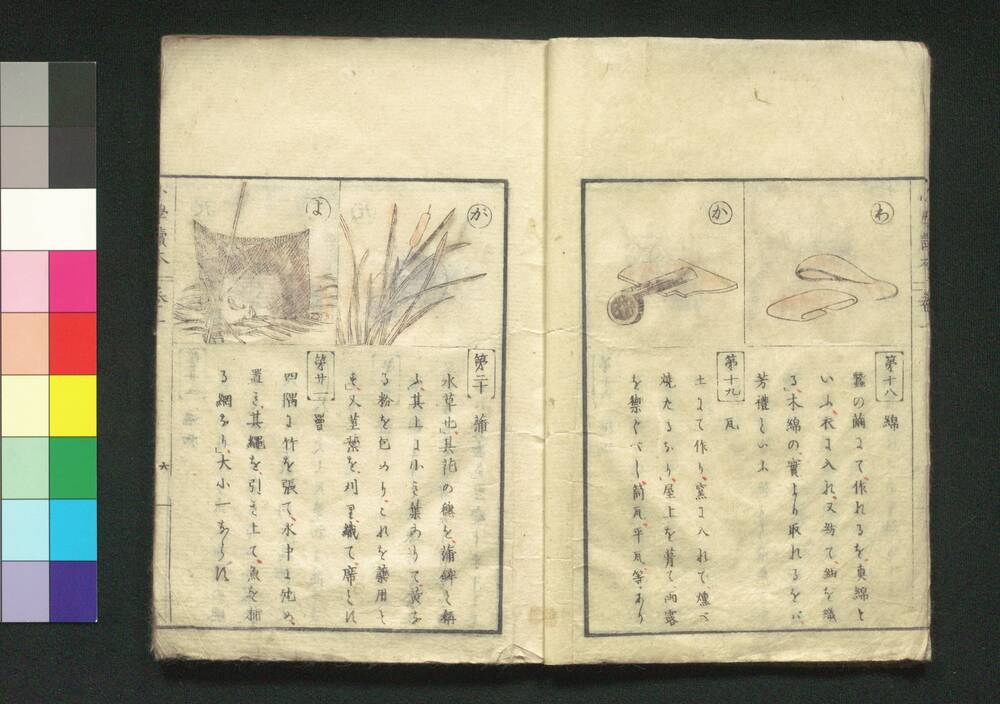 わ
第十八 綿
蠶の繭にて、作れるを、真綿と
いふ、衣に入れ、又紡て、紬を織
る、木綿の實より取れるをバ、
芳禮といふ
か
第十九 瓦
土にて作り、窯に入れて、燻べ
焼たるなり、屋上を葺て、雨露
を禦ぐべし、筒瓦、平瓦等、あり
が
第二十 蒲
水草也、其花の穗を、蒲鉾と稱
ふ、其上に小き葉ありて、黄な
る粉を包めり、これを藥用と
も、又莖葉を、刈り、織て、席とも
よ
第廿一 罾
四隅に竹を張て、水中に沈め、
置き、其繩を、引き上て、魚を捕
る網なり、大小一ならず
六